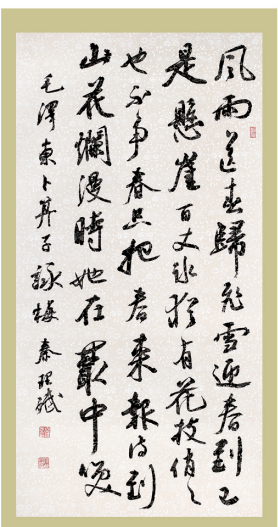 風雨送春歸飛雪迎春到已
是懸崖百丈冰猶有花枝俏々
也不争春只把春來報待到
山花爛漫時她在叢中笑
毛澤東卜算子詠梅 秦理斌